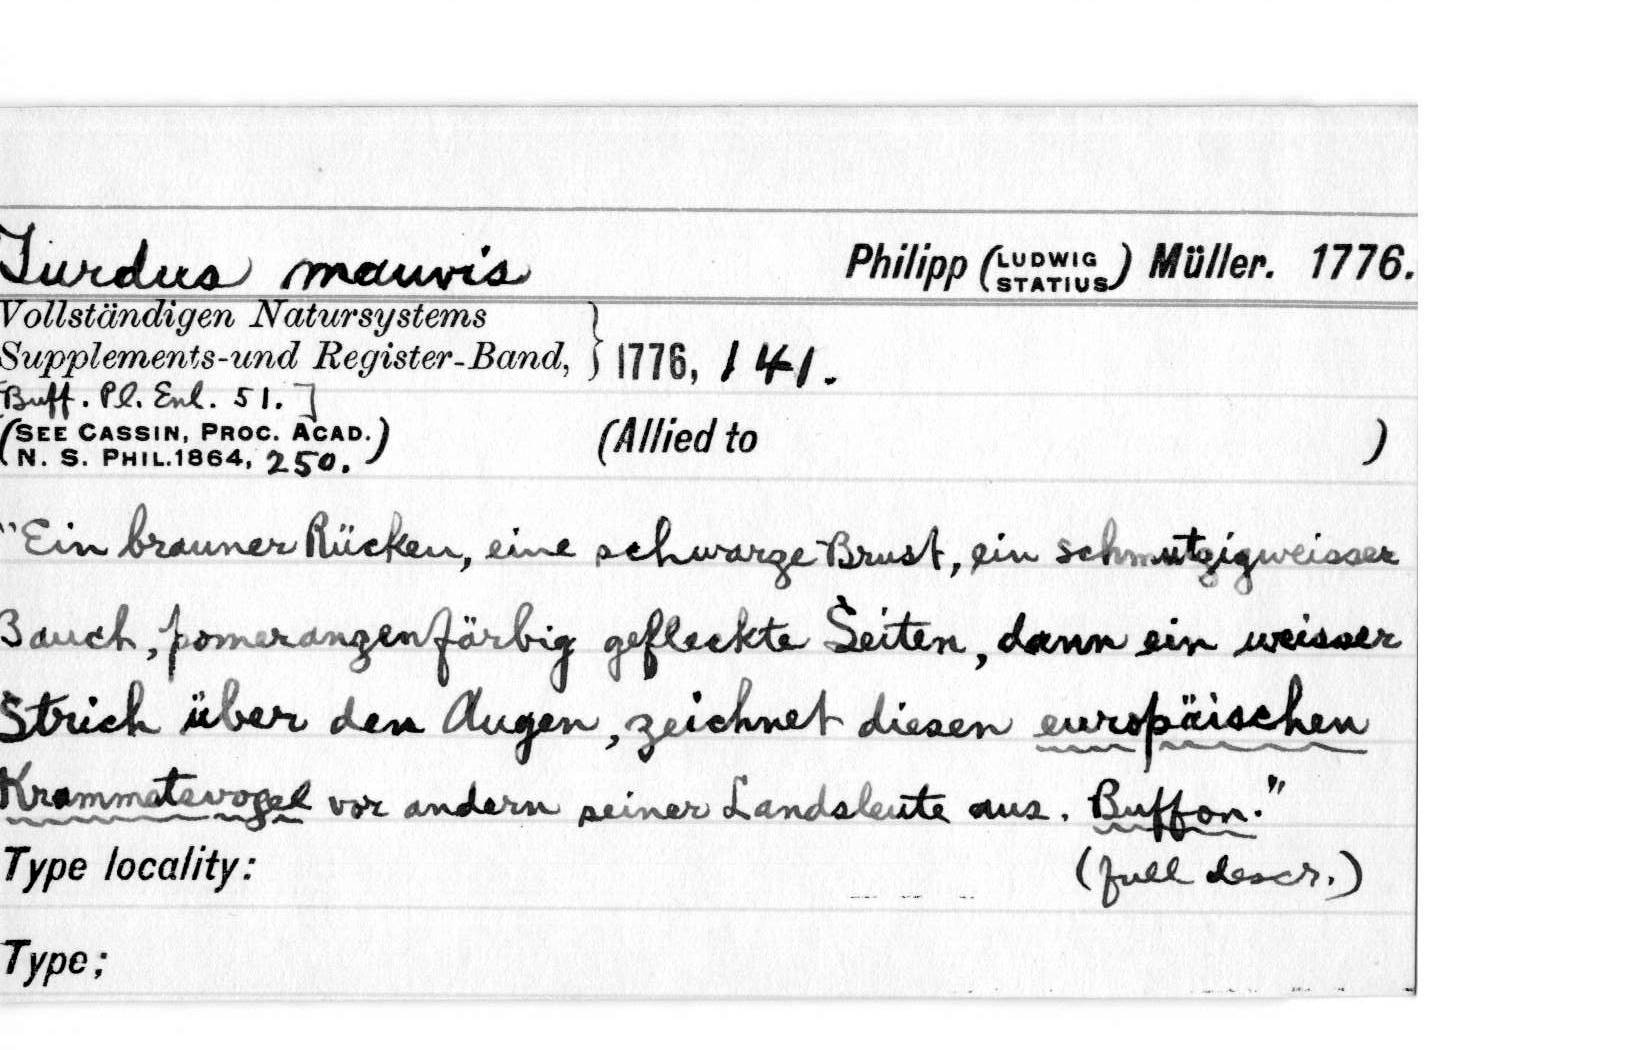 Turdus mauvis Philipp (LUDWIG STATIUS) Müller. 1776.
Vollständigen Natursystems
Supplements-und Register-Band, } 1776, 141.
[Buff. Pl. Enl. 51.]
(SEE CASSIN, PROC. ACAD. N. S. PHIL. 1864, 250.) (Allied to )
"Ein brauner Rücken, eine schwarze Brust, ein schmutzigweisser
Bauch, pomeranzenfärbig gefleckte Seiten, dann ein weisser
Strich über den Augen, zeichnet diesen europäischen
Krammetsvogel vor andern seiner Landsleute aus. Buffon."
Type locality: (full descr.)
Type;